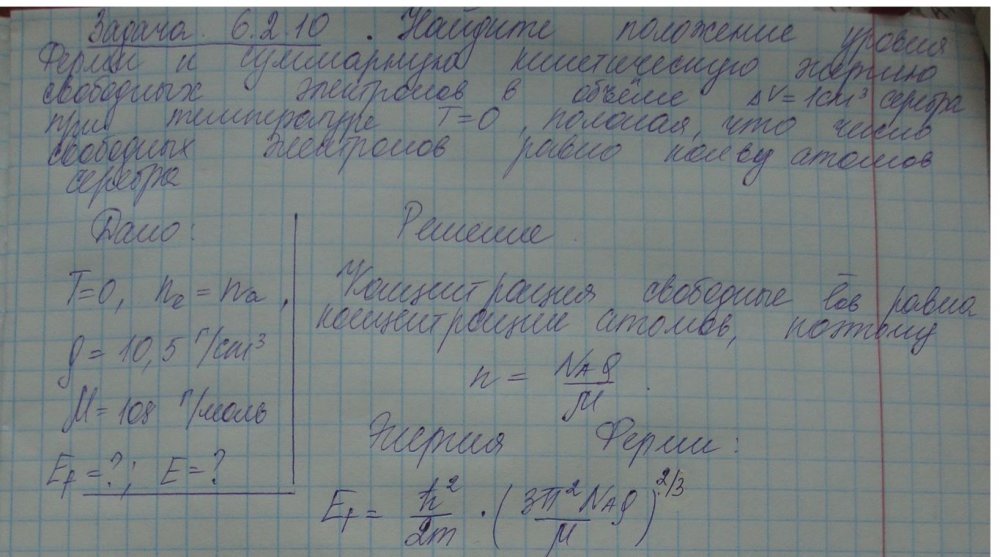 Задача 6.2.10. Найдите положение уровня
Ферми и суммарную кинетическую энергию
свободных электронов в объёме ΔV=1см³ серебра
при температуре T=0, полагая, что число
свободных электронов равно кол-ву атомов
серебра
Дано:
T=0, nₑ = nₐ,
ρ = 10,5 г/см³
M = 108 г/моль
E_f = ?; E = ?
Решение.
Концентрация свободные ē-ов равна
концентрации атомов, поэтому
n = N_A ρ / M.
Энергия Ферми:
E_f = ħ²/2m · (3π² N_A ρ / M)^2/3